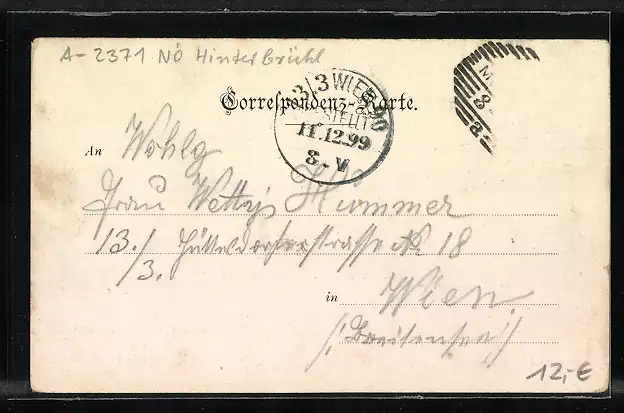 A-2371 NÖ Hinterbrühl
Correspondenz-Karte.
13/3 WIEN 90
BESTELLT
11.12.99
8.-V
An Wohlg
Frau Wetty's Hummer
13./ Hütteldorferstrasse № 18
/3.
in Wien
/: Breitensee :/
12,-€